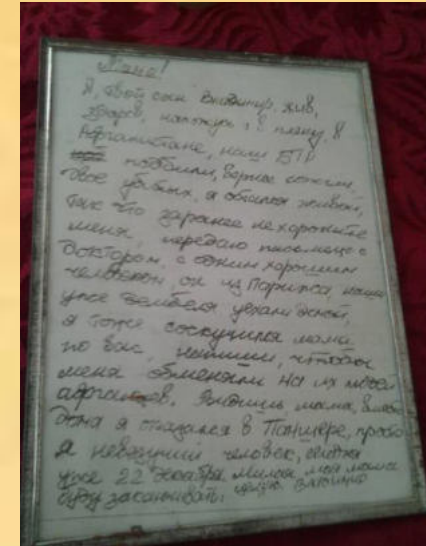 Мама!
Я, твой сын Владимир, жив,
здоров, нахожусь в плену. В
Афганистане, наш БТР
подбили, вернее сожгли,
двое убитых, я остался живой,
так что заранее не хороните
меня, передаю письмецо с
доктором, с одним хорошим
человеком, он из Парижа, наши
уже дембеля уехали домой,
я тоже соскучился мама
по вас, напиши, чтобы
меня обменяли на их людей
афганцев. Видишь, мама,
я оказался в Паншере, просто
я невезучий человек, сегодня
уже 22 декабря. Милая моя мама
буду заканчивать целую. Владимир